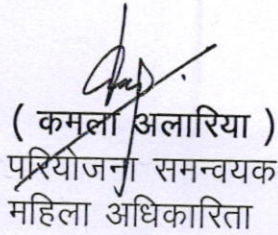 ( कमला अलारिया )
परियोजना समन्वयक
महिला अधिकारिता